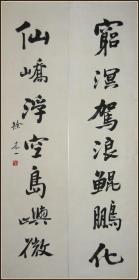 窮溟駕浪鯤鵬化
仙嶠浮空島嶼微